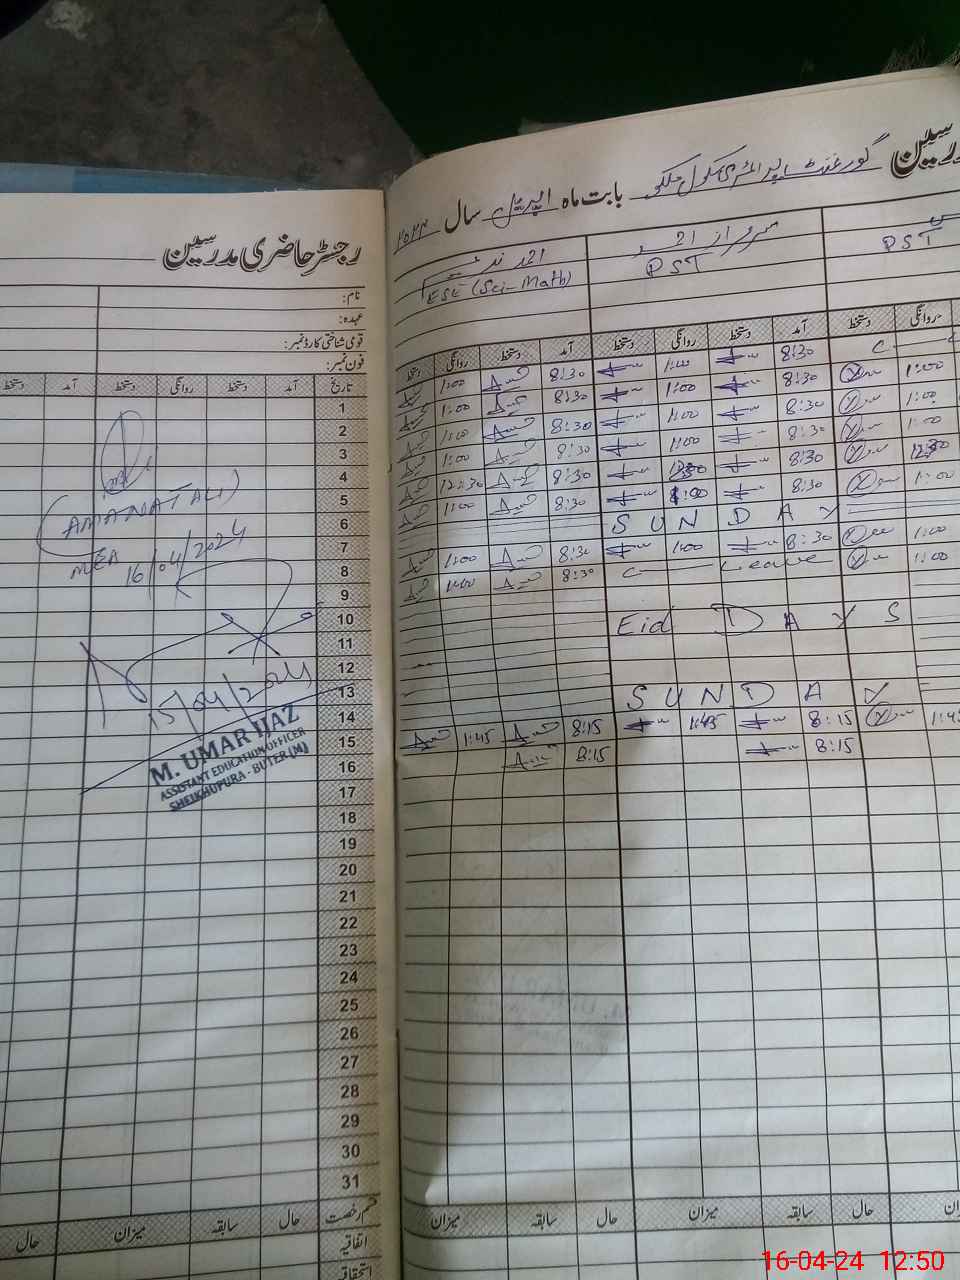 رجسٹر حاضری مدرسین
نام:
عہدہ:
قومی شناختی کارڈ نمبر:
فون نمبر:
تاریخ آمد دستخط روانگی دستخط آمد دستخط
1
2
3
4
5
6
7
8
9
10
11
12
13
14
15
16
17
18
19
20
21
22
23
24
25
26
27
28
29
30
31
(AMANAT ALI)
MEA
16/04/2024
15/04/2024
M. UMAR IJAZ
ASSISTANT EDUCATION OFFICER
SHEIKHUPURA - BUTER (M)
قسم رخصت حال سابقہ میزان حال
اتفاقیہ
استحقاقیہ
گورنمنٹ پرائمری سکول بابت ماہ اپریل سال ۲۰۲۴
احمد
ESE (Sci-Math)
سرفراز احمد
PST
PST
دستخط روانگی دستخط آمد دستخط روانگی دستخط آمد دستخط روانگی
1:00 8:30 1:00 8:30
1:00 8:30 1:00 8:30 1:00
1:00 8:30 1:00 8:30 1:00
1:00 8:30 1:00 8:30 1:00
12:30 8:30 8:30 12:30
1:00 8:30 1:00 8:30 1:00
SUNDAY
1:00 8:30 1:00 8:30 1:00
1:00 8:30 Leave 1:00
Eid DAYS
SUNDAY
1:45 8:15 1:45 8:15 1:45
8:15 8:15
میزان سابقہ حال میزان سابقہ حال
16-04-24 12:50